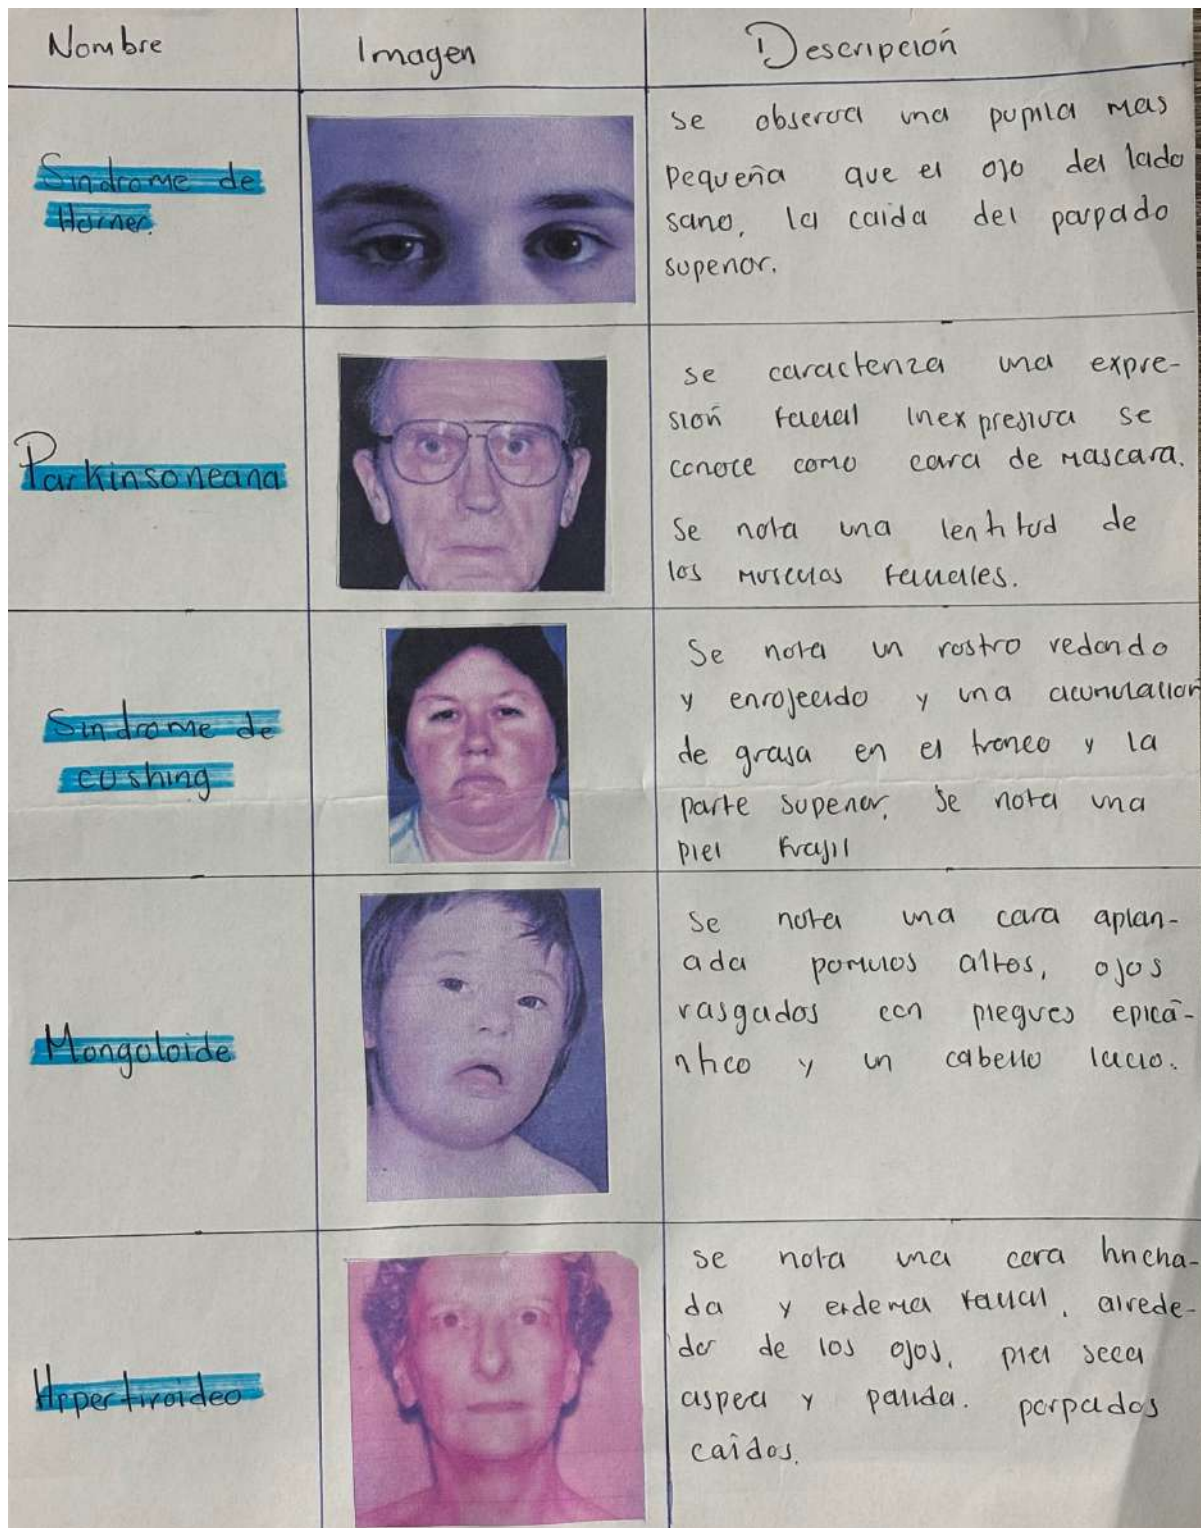 Nombre
Imagen
Descripción
Sindrome de
Horner.
se observa una pupila mas
pequeña que el ojo del lado
sano, la caida del parpado
superior.
Parkinsoneana
se caracteriza una expre-
sión facial inexpresiva se
conoce como cara de mascara.
Se nota una lentitud de
los musculos faciales.
Sindrome de
cushing
Se nota un rostro redondo
y enrojecido y una acumulacion
de grasa en el tronco y la
parte superior, se nota una
piel frajil
Mongoloide
Se nota una cara aplan-
ada pomulos altos, ojos
rasgados con plegues epicá-
ntico y un cabello lacio.
Hipertiroideo
se nota una cara hincha-
da y edema facial, alrede-
dor de los ojos, piel seca
aspera y palida. parpados
caídos.